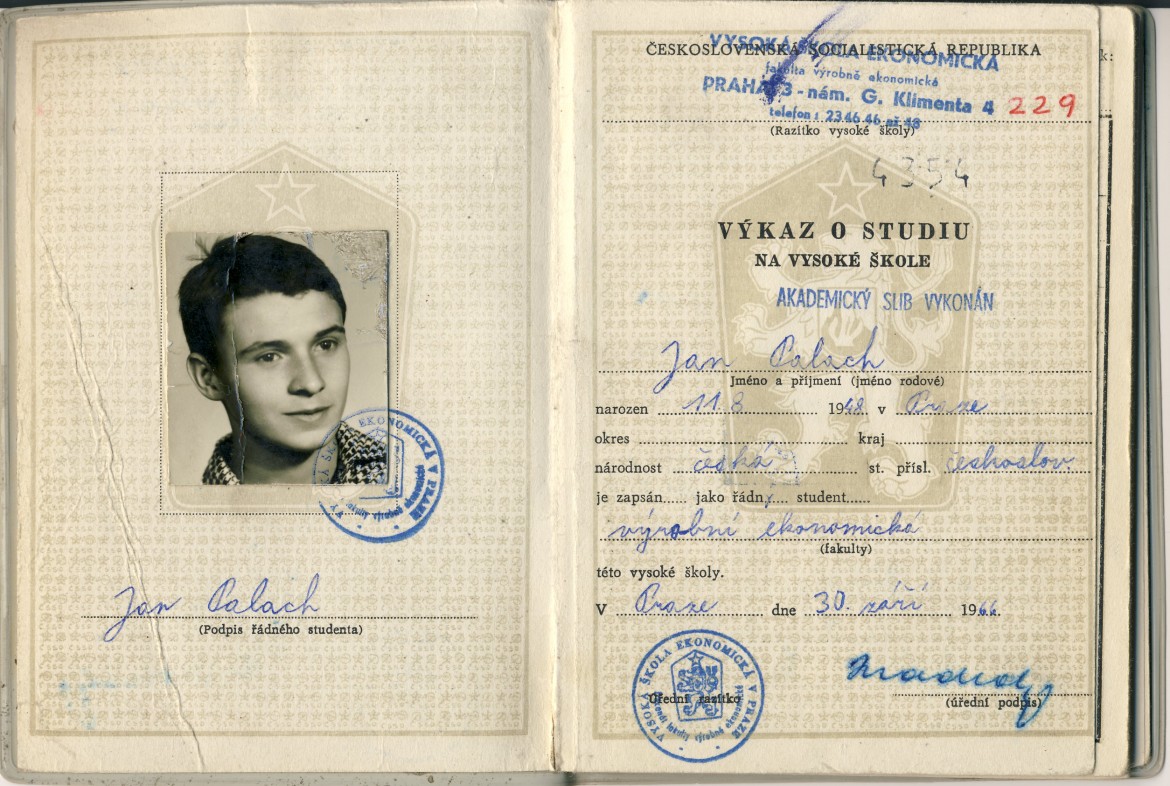 Jan Palach
(Podpis řádného studenta)
EKONOMICKÁ V PRAZE
fakulty výrobně ekonomické
ČESKOSLOVENSKÁ SOCIALISTICKÁ REPUBLIKA
VYSOKÁ ŠKOLA EKONOMICKÁ
fakulta výrobně ekonomická
PRAHA 3 - nám. G. Klimenta 4
229
telefon: 23 46 46 až 48
(Razítko vysoké školy)
4354
VÝKAZ O STUDIU
NA VYSOKÉ ŠKOLE
AKADEMICKÝ SLIB VYKONÁN
Jan Palach
Jméno a příjmení (jméno rodové)
narozen 11.8. 1948 v Praze
okres kraj
národnost česká st. přísl. českoslov.
je zapsán jako řádný student
výrobní ekonomická
(fakulty)
této vysoké školy.
V Praze dne 30. září 1966.
VYSOKÁ ŠKOLA EKONOMICKÁ V PRAZE
fakulty výrobně ekonomické
Úřední razítko
(úřední podpis)
k: